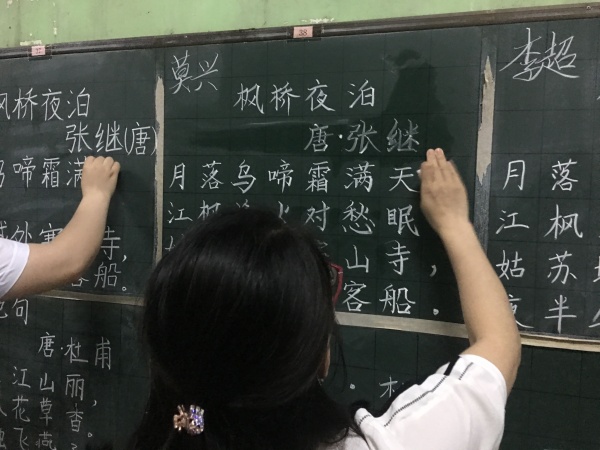 枫桥夜泊
张继(唐)
啼霜满
外寒寺,
客船。
绝句
唐·杜甫
江山丽,
花草香。
飞燕
莫兴
枫桥夜泊
唐·张继
月落乌啼霜满天
江枫火对愁眠
山寺,
客船。
李超
月落
江枫
姑苏
夜半